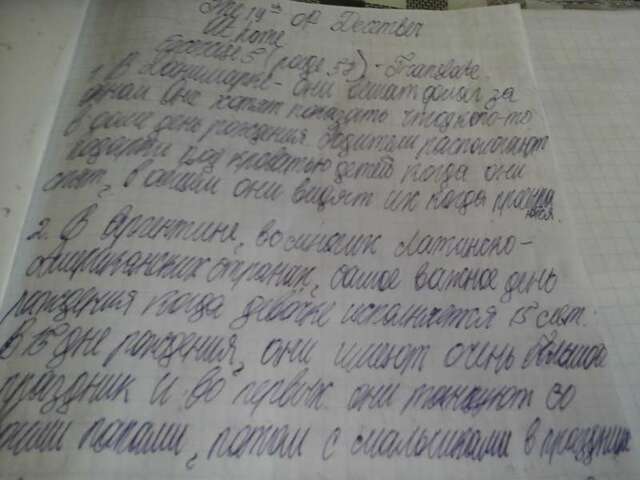 The 19th of December
At home
exercise 5 (page 57) - Translate.
1. В Данишмарке - они вешают флаг за
окном они хотят показать что у кого-то
в доме день рождения. Родители распологают
подарки под кроватью детей когда они
спят, в общим они видят их когда просыпа
ются.
2. В Аргентине, во многих Латинско-
Американских странах, самое важное день
рождения когда девочке исполняется 15 лет.
В 15 дне рождения, они имеют очень большой
праздник и во первых они танцуют со
папами, потом с мальчиками в празднице